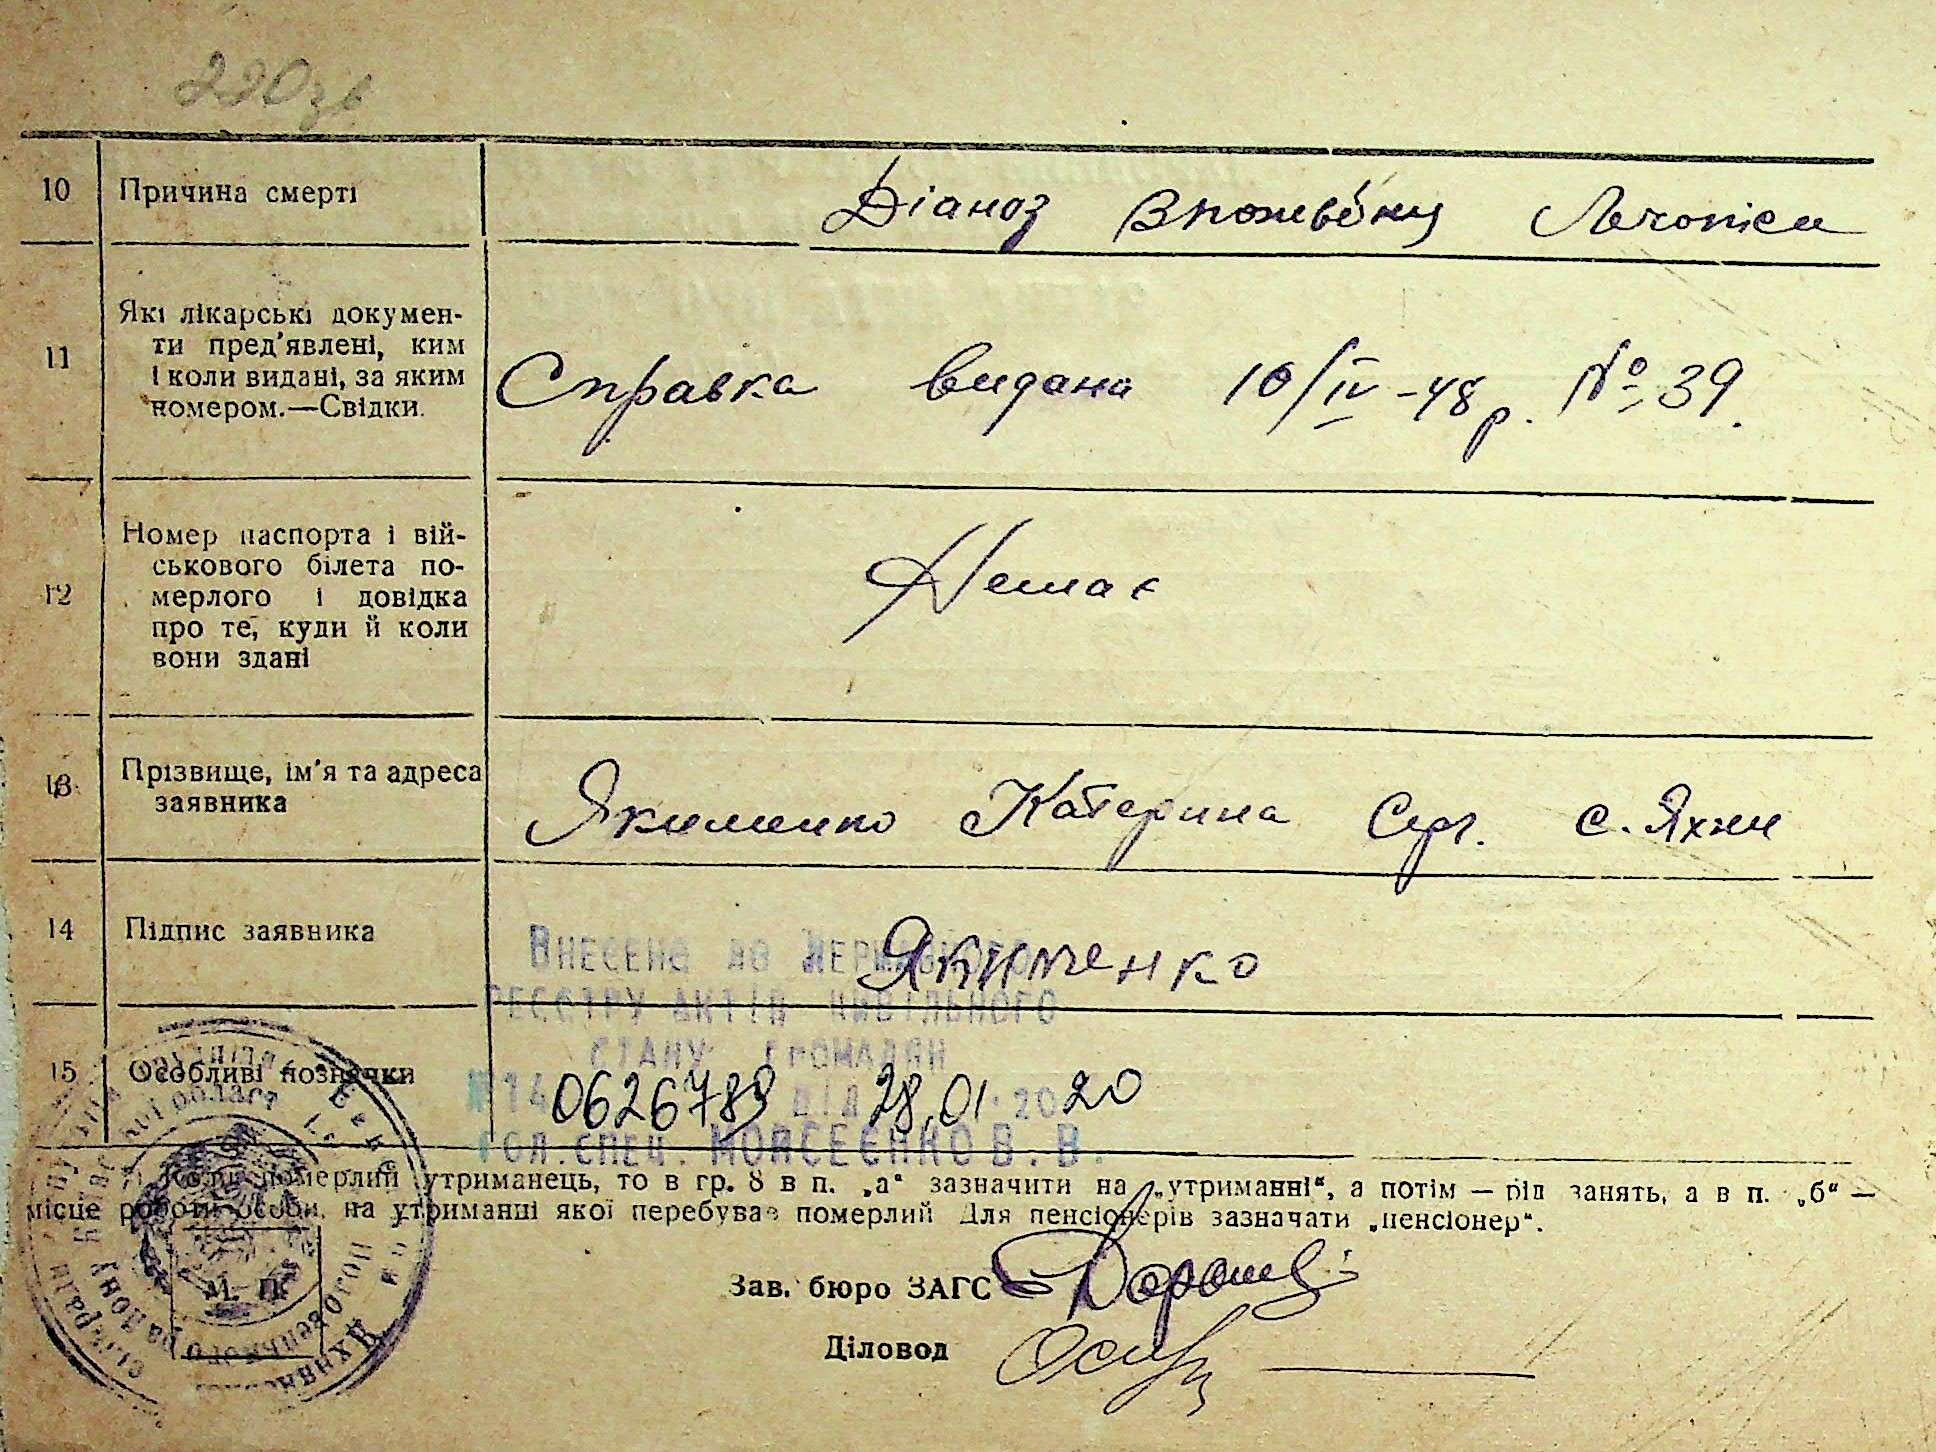 220зв
10 Причина смерті Діаноз
11 Які лікарські докумен-
ти пред'явлені, ким
і коли видані, за яким
номером.—Свідки.
Справка видана 10/IV-48р. № 39.
12 Номер паспорта і вій-
ськового білета по-
мерлого і довідка
про те, куди й коли
вони здані
Немає
13 Прізвище, ім'я та адреса
заявника
Якименко Катерина Серг. с. Яхни
14 Підпис заявника Якименко
Внесено до Державного
реєстру актів цивільного
стану громадян
15 Особливі позначки
№14 0626783 від 28.01.2020
гол.спец. Мойсеєнко В.В.
Коли померлий утриманець, то в гр. 8 в п. „а“ зазначити на „утриманні“, а потім — рід занять, а в п. „б“ —
місце роботи особи, на утриманні якої перебував померлий Для пенсіонерів зазначати „пенсіонер“.
М. П.
Зав. бюро ЗАГС
Діловод